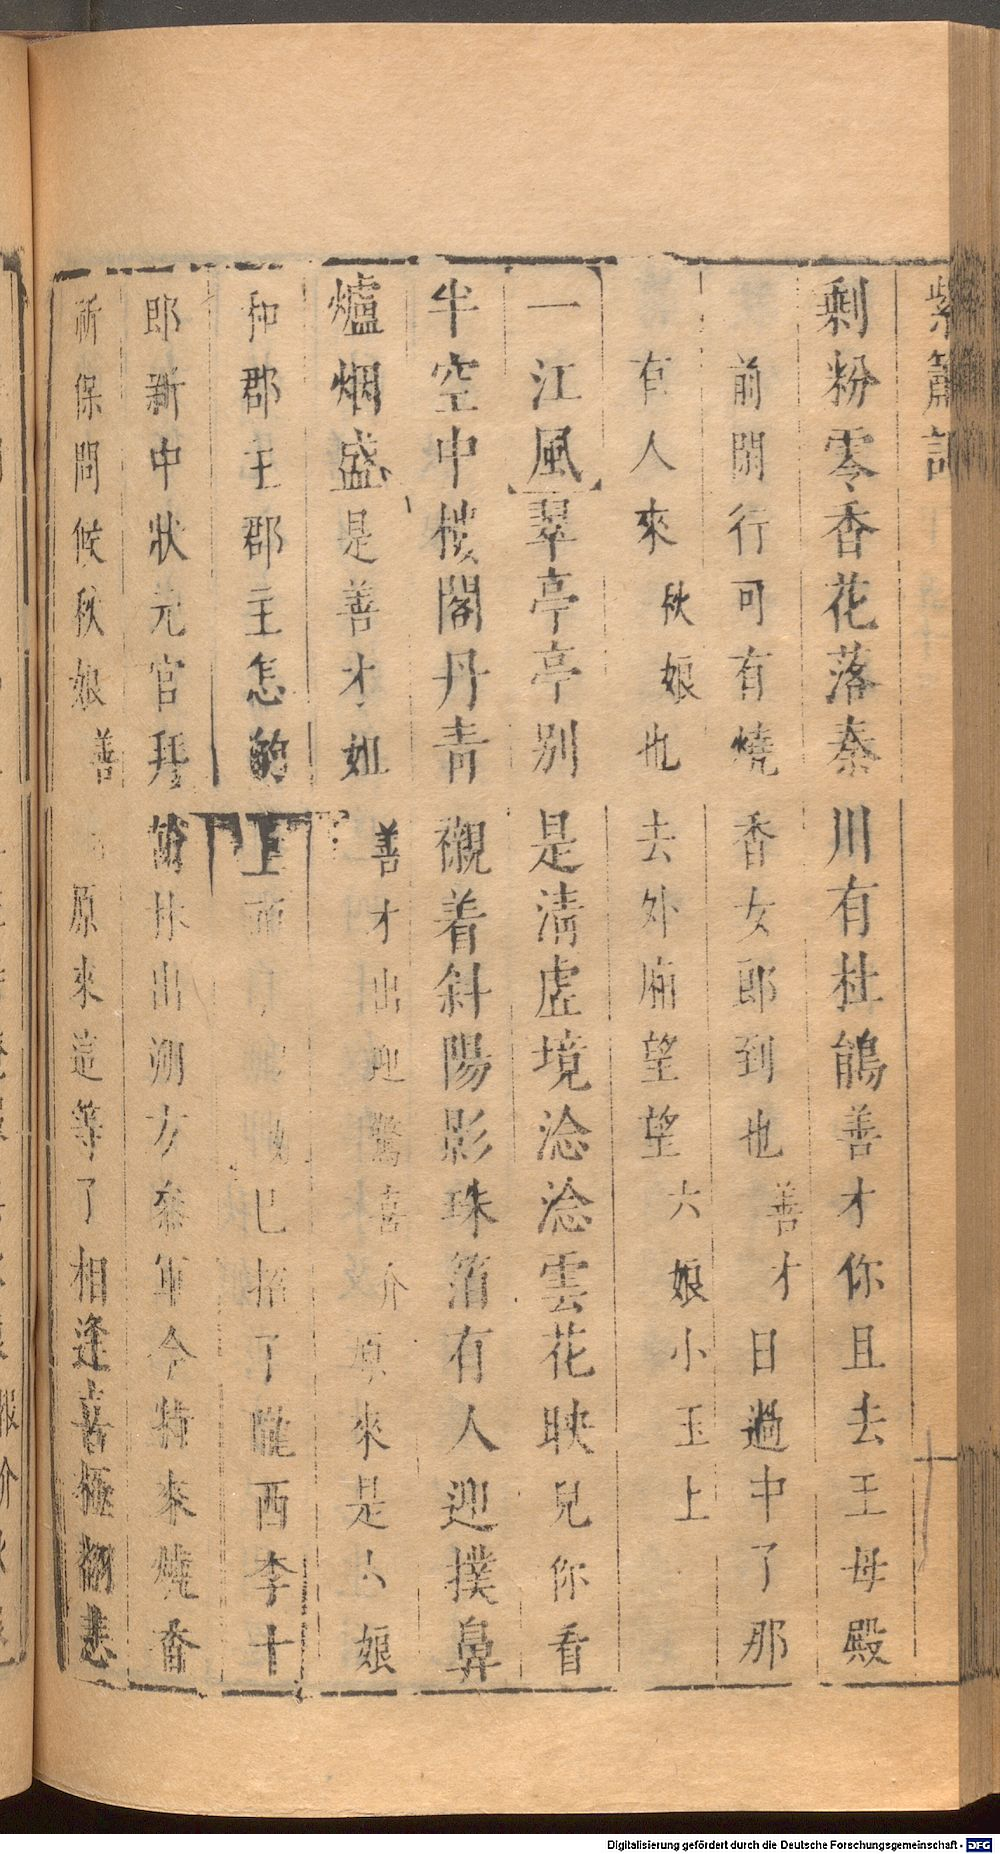 紫簫記
剩粉零香花落秦川有杜鵑善才你且去王母殿
前閒行可有燒香女郎到也善才日過中了那
有人來秋娘也去外廟望望六娘小玉上
一江風翠亭亭別是淸虛境淰淰雲花映兒你看
半空中樓閣丹靑襯着斜陽影珠箔有人迎撲鼻
爐烟盛是善才姐善才出迎驚喜介原來是六娘
和郡主郡主怎的上已招了隴西李十
郎新中狀元官拜出朔方參軍今特來燒香
祈保問候秋娘善原來這等了相逢喜極翻悲
Digitalisierung gefördert durch die Deutsche Forschungsgemeinschaft - DFG